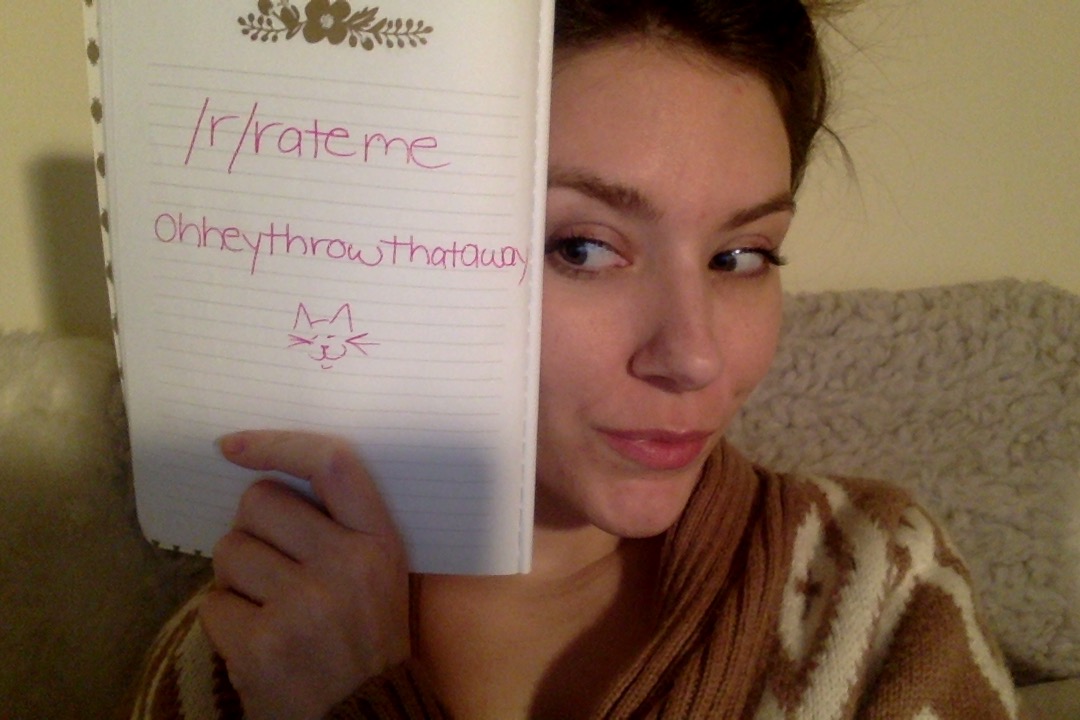 /r/rateme
ohheythrowthataway